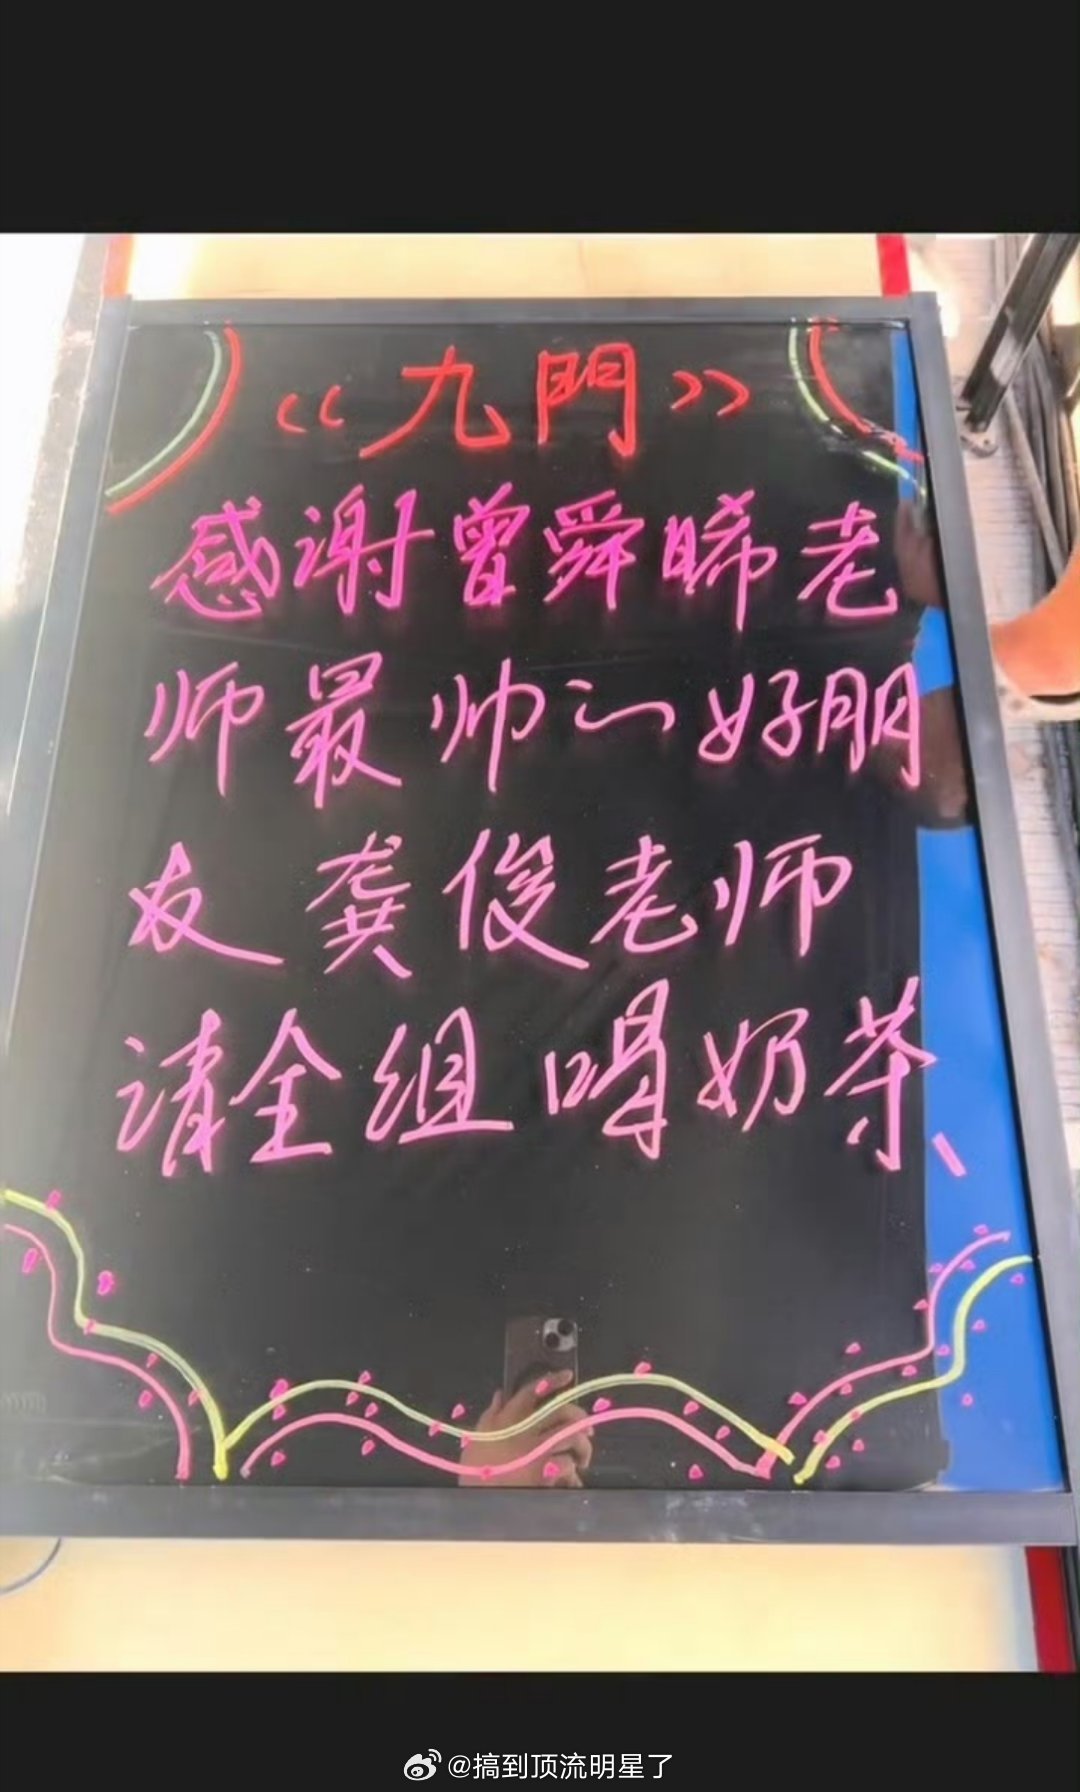 《九門》
感谢曾舜晞老
师最帅的好朋
友龚俊老师
请全组喝奶茶
@搞到顶流明星了